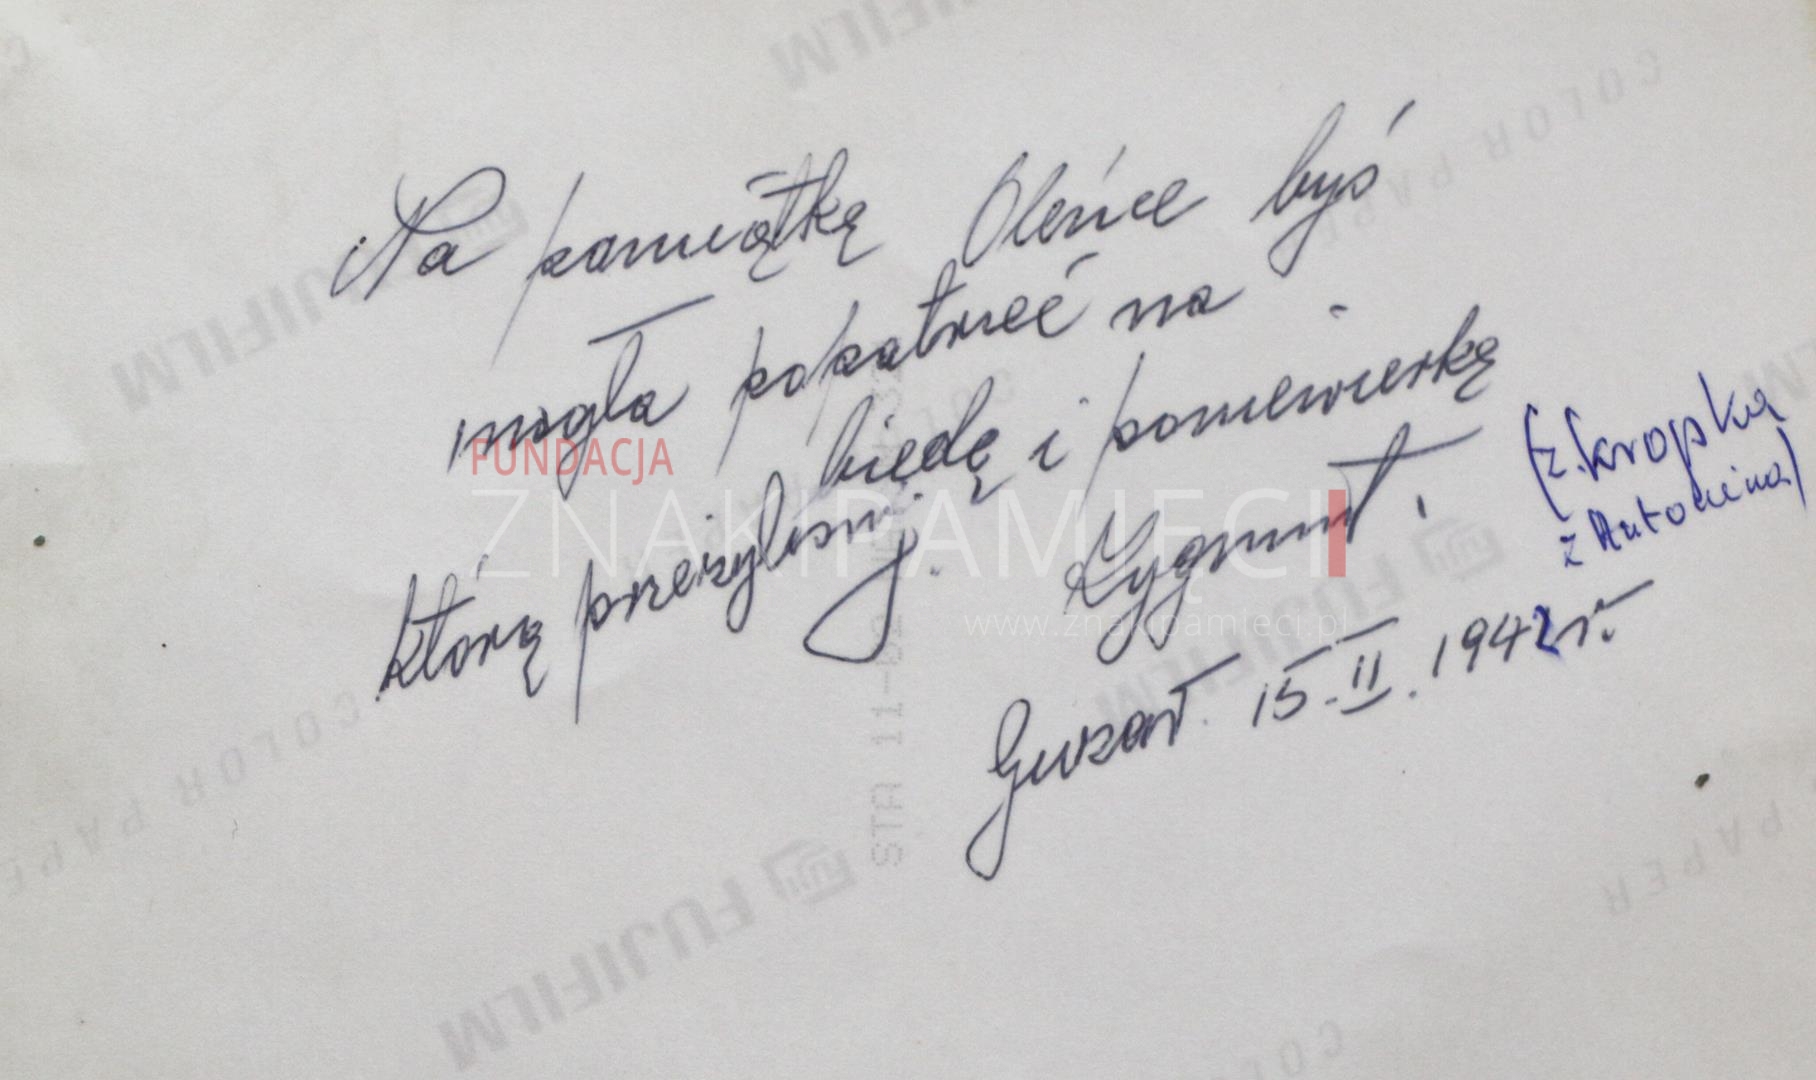 Na pamiątkę Oleńce byś
mogła popatrzeć na
biedę i poniewierkę
którą przeżyliśmy.
Zygmunt.
(z kropką
z Antonina)
Guzar. 15.II.1942 r.
FUNDACJA
ZNAKI PAMIĘCI
www.znakipamieci.pl
FUJIFILM
COLOR PAPER
FUJIFILM
COLOR PAPER
FUJIFILM
COLOR PAPER
FUJIFILM